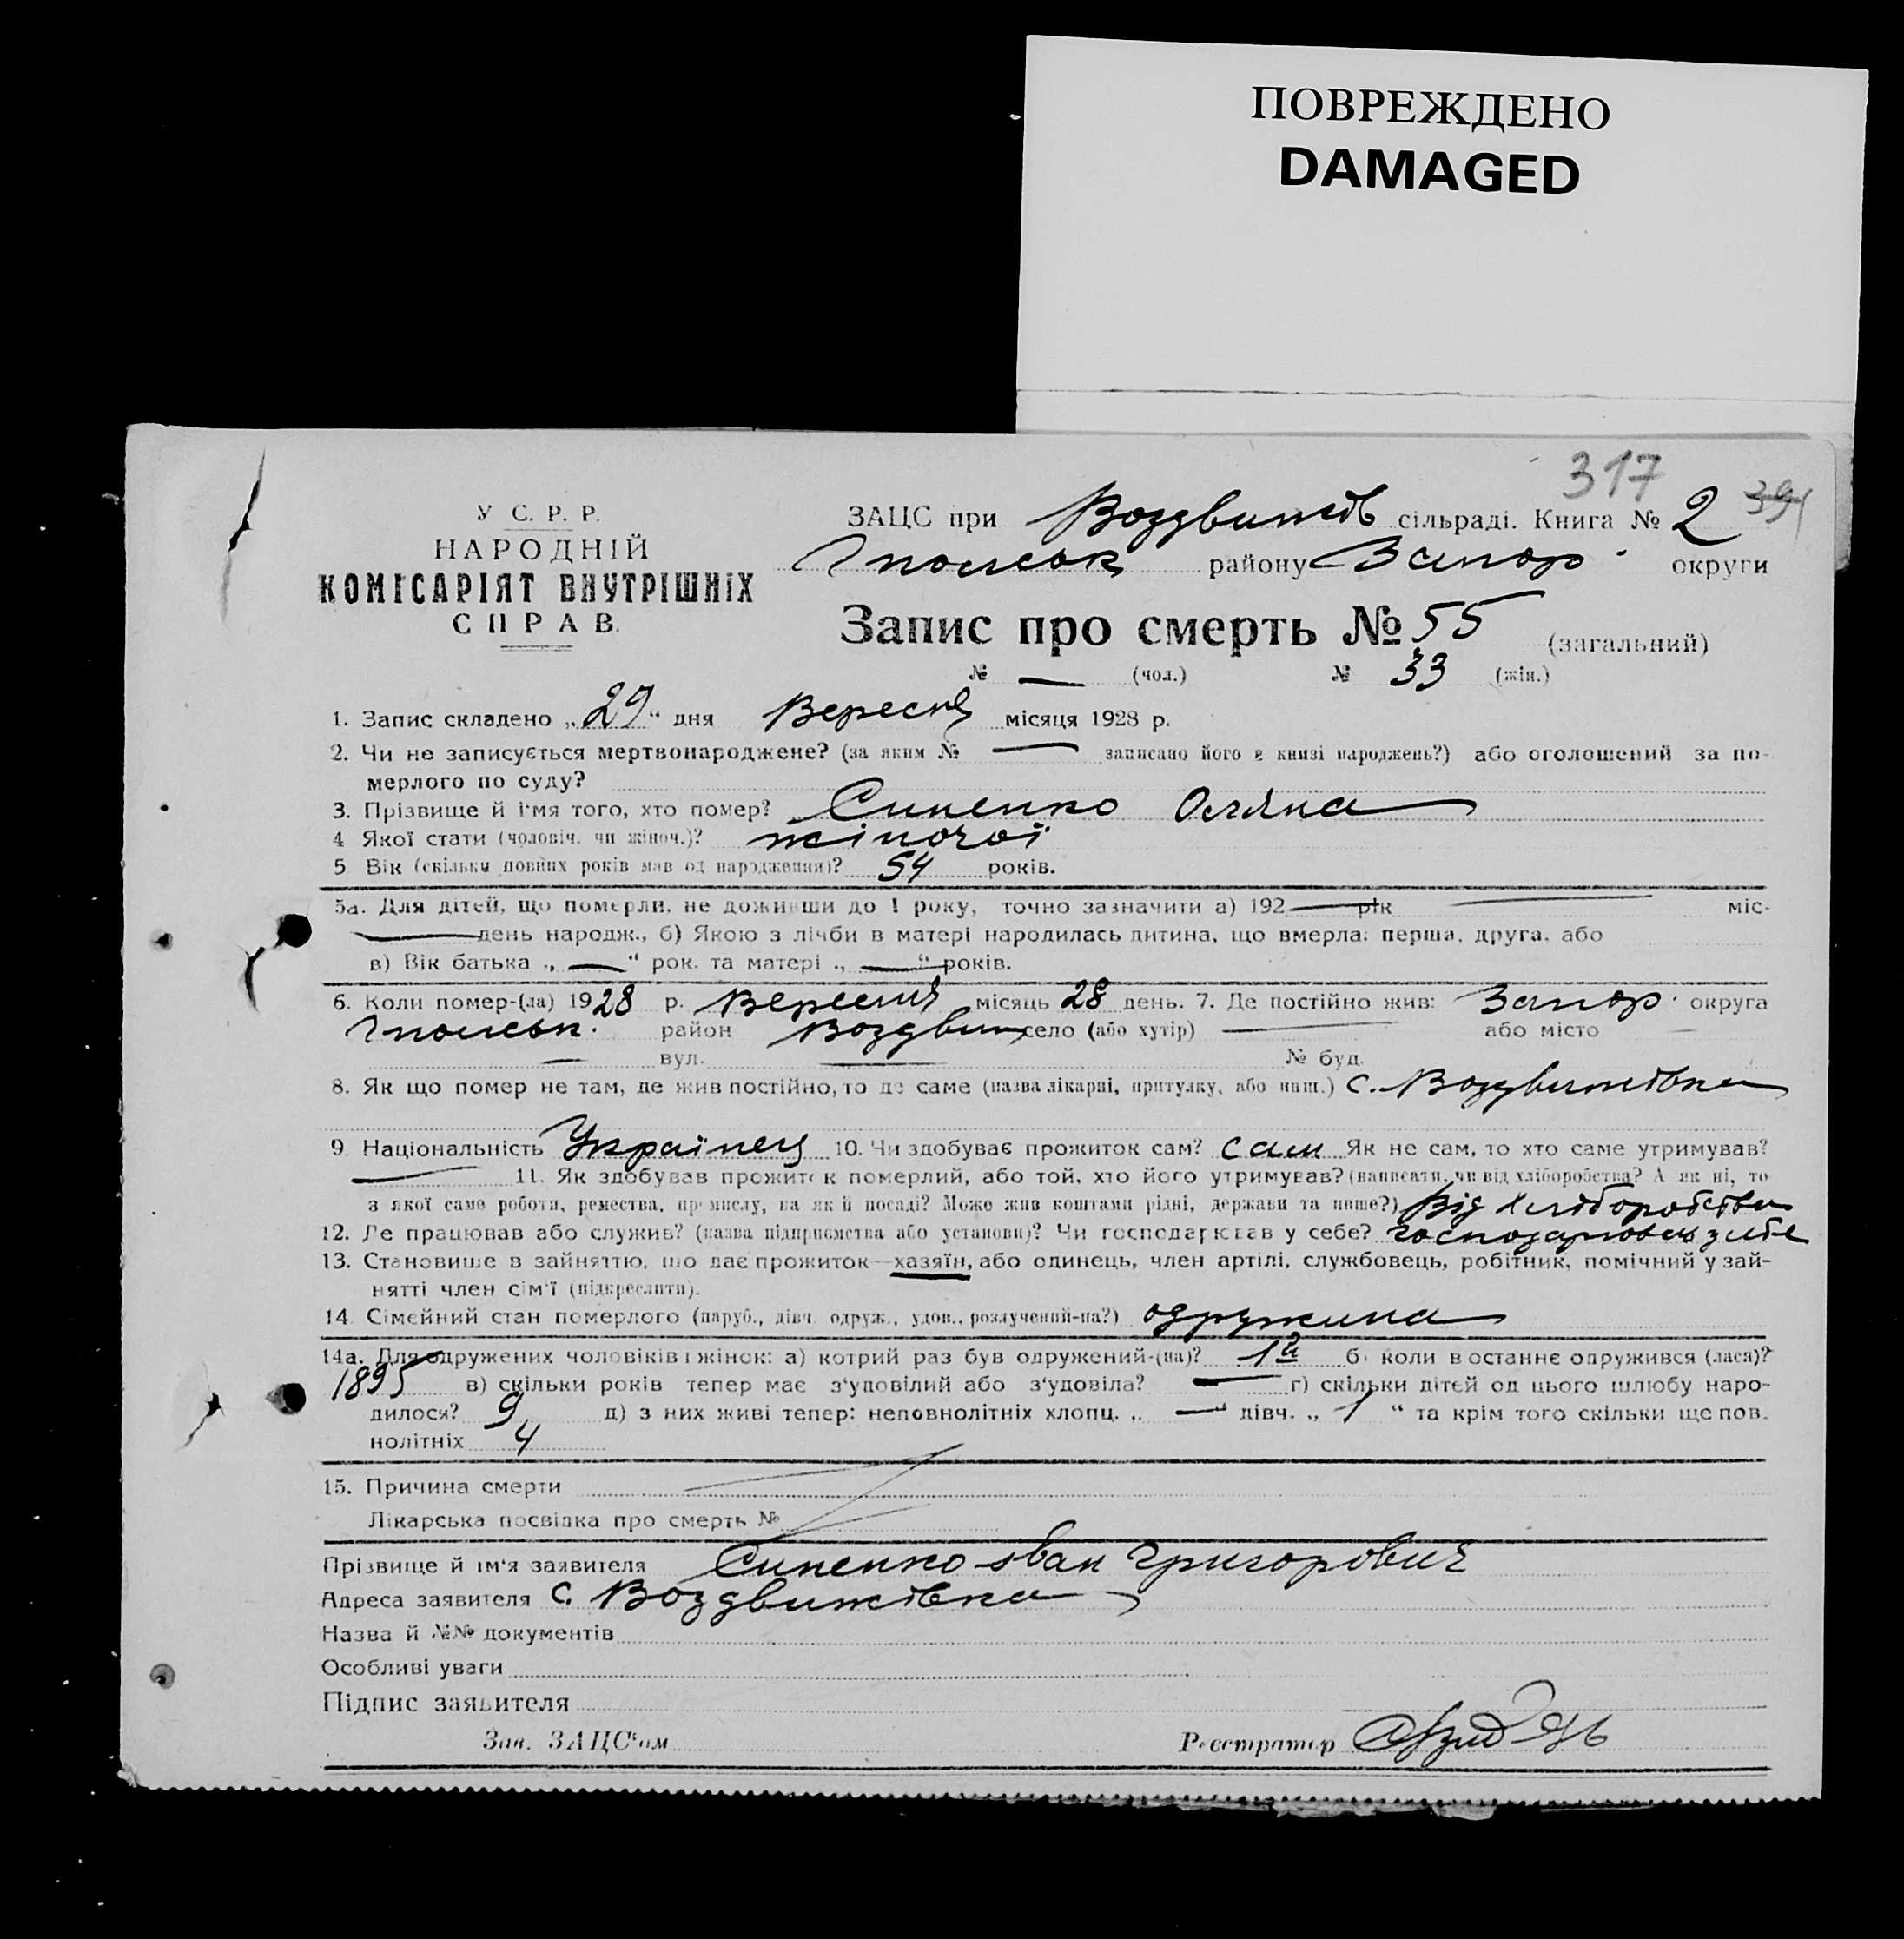 ПОВРЕЖДЕНО
DAMAGED
317
394
У. С. Р. Р.
НАРОДНІЙ
КОМІСАРІЯТ ВНУТРІШНІХ
СПРАВ.
ЗАЦС при Воздвижів сільраді. Книга № 2
району Запор. округи
Запис про смерть № 55 (загальний)
№ — (чол.) № 33 (жін.)
1. Запис складено „29“ дня Вересня місяця 1928 р.
2. Чи не записується мертвонароджене? (за яким № — записано його в книзі народжень?) або оголошений за по-
мерлого по суду?
3. Прізвище й ім'я того, хто помер? Синенко Оляна
4 Якої стати (чоловіч. чи жіноч.)? жіночої
5 Вік (скільки повних років мав од народження)? 54 років.
5а. Для дітей, що померли, не доживши до 1 року, точно зазначити а) 192 — рік — міс-
— день народж., б) Якою з лічби в матері народилась дитина, що вмерла: перша, друга, або
в) Вік батька „ — “ рок. та матері „ — “ років.
6. Коли помер-(ла) 1928 р. Вересня місяць 28 день. 7. Де постійно жив: Запор. округа
район Воздвиж село (або хутір) — або місто —
— вул. — № буд.
8. Як що помер не там, де жив постійно, то де саме (назва лікарні, притулку, або инш.) с. Воздвижівка
9. Національність Українец 10. Чи здобуває прожиток сам? сам Як не сам, то хто саме утримував?
— 11. Як здобував прожиток померлий, або той, хто його утримував? (написати, чи від хліборобства? А як ні, то
з якої саме роботи, ремества, промислу, на якій посаді? Може жив коштами рідні, держави та инше?) Від хліборобства
12. Де працював або служив? (назва підприємства або установи)? Чи господарював у себе? господарював у себе
13. Становище в зайняттю, що дає прожиток—хазяїн, або одинець, член артілі, службовець, робітник, помічний у зай-
нятті член сім'ї (підкреслити).
14. Сімейний стан померлого (паруб., дівч. одруж., удов., розлучений-на?) одружина
14а. Для одружених чоловіків і жінок: а) котрий раз був одружений-(на)? 1й б) коли востаннє одружився (лася)?
1895 в) скільки років тепер має з'удовілий або з'удовіла? — г) скільки дітей од цього шлюбу наро-
дилося? 9 д) з них живі тепер: неповнолітніх хлопц. „ — “ дівч. „ 1 “ та крім того скільки ще пов-
нолітніх 4
15. Причина смерти
Лікарська посвідка про смерть №
Прізвище й ім'я заявителя Синенко Іван Григорович
Адреса заявителя с. Воздвижівка
Назва й №№ документів
Особливі уваги
Підпис заявителя
Зав. ЗАЦС'ом Реєстратор